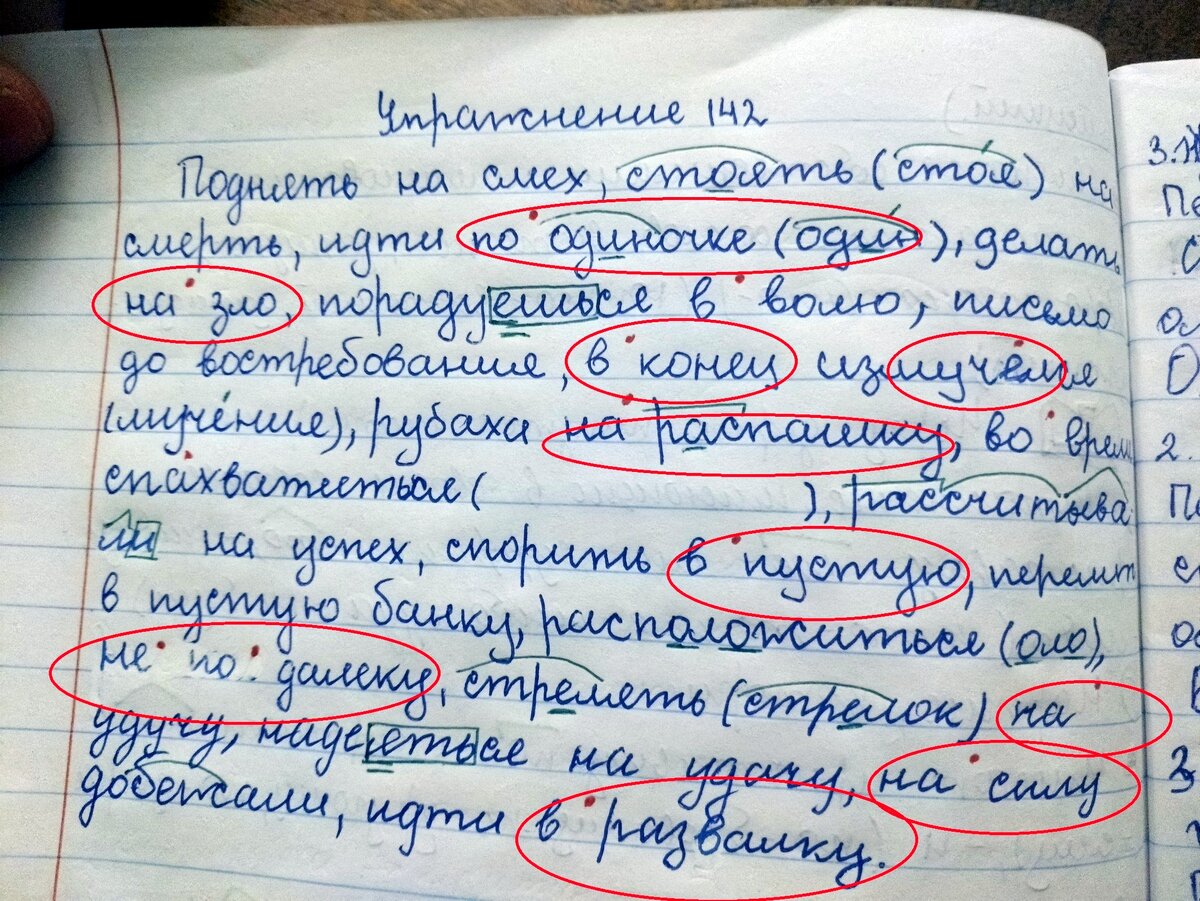 Упражнение 142
Поднять на смех, стоять (стоя) на
смерть, идти по одиночке (один), делать
на зло, порадуешься в волю, письмо
до востребования, в конец измучемя
(мучения), рубаха на распашку, во врем
спахватиться ( ), рассчитыва
ли на успех, спорить в пустую,
в пустую банку, расположиться (оло),
не по далеку, стремять (стрелок) на
удучу, надееться на удачу, на силу
добежали, идти в развалку.
3.
2.
3